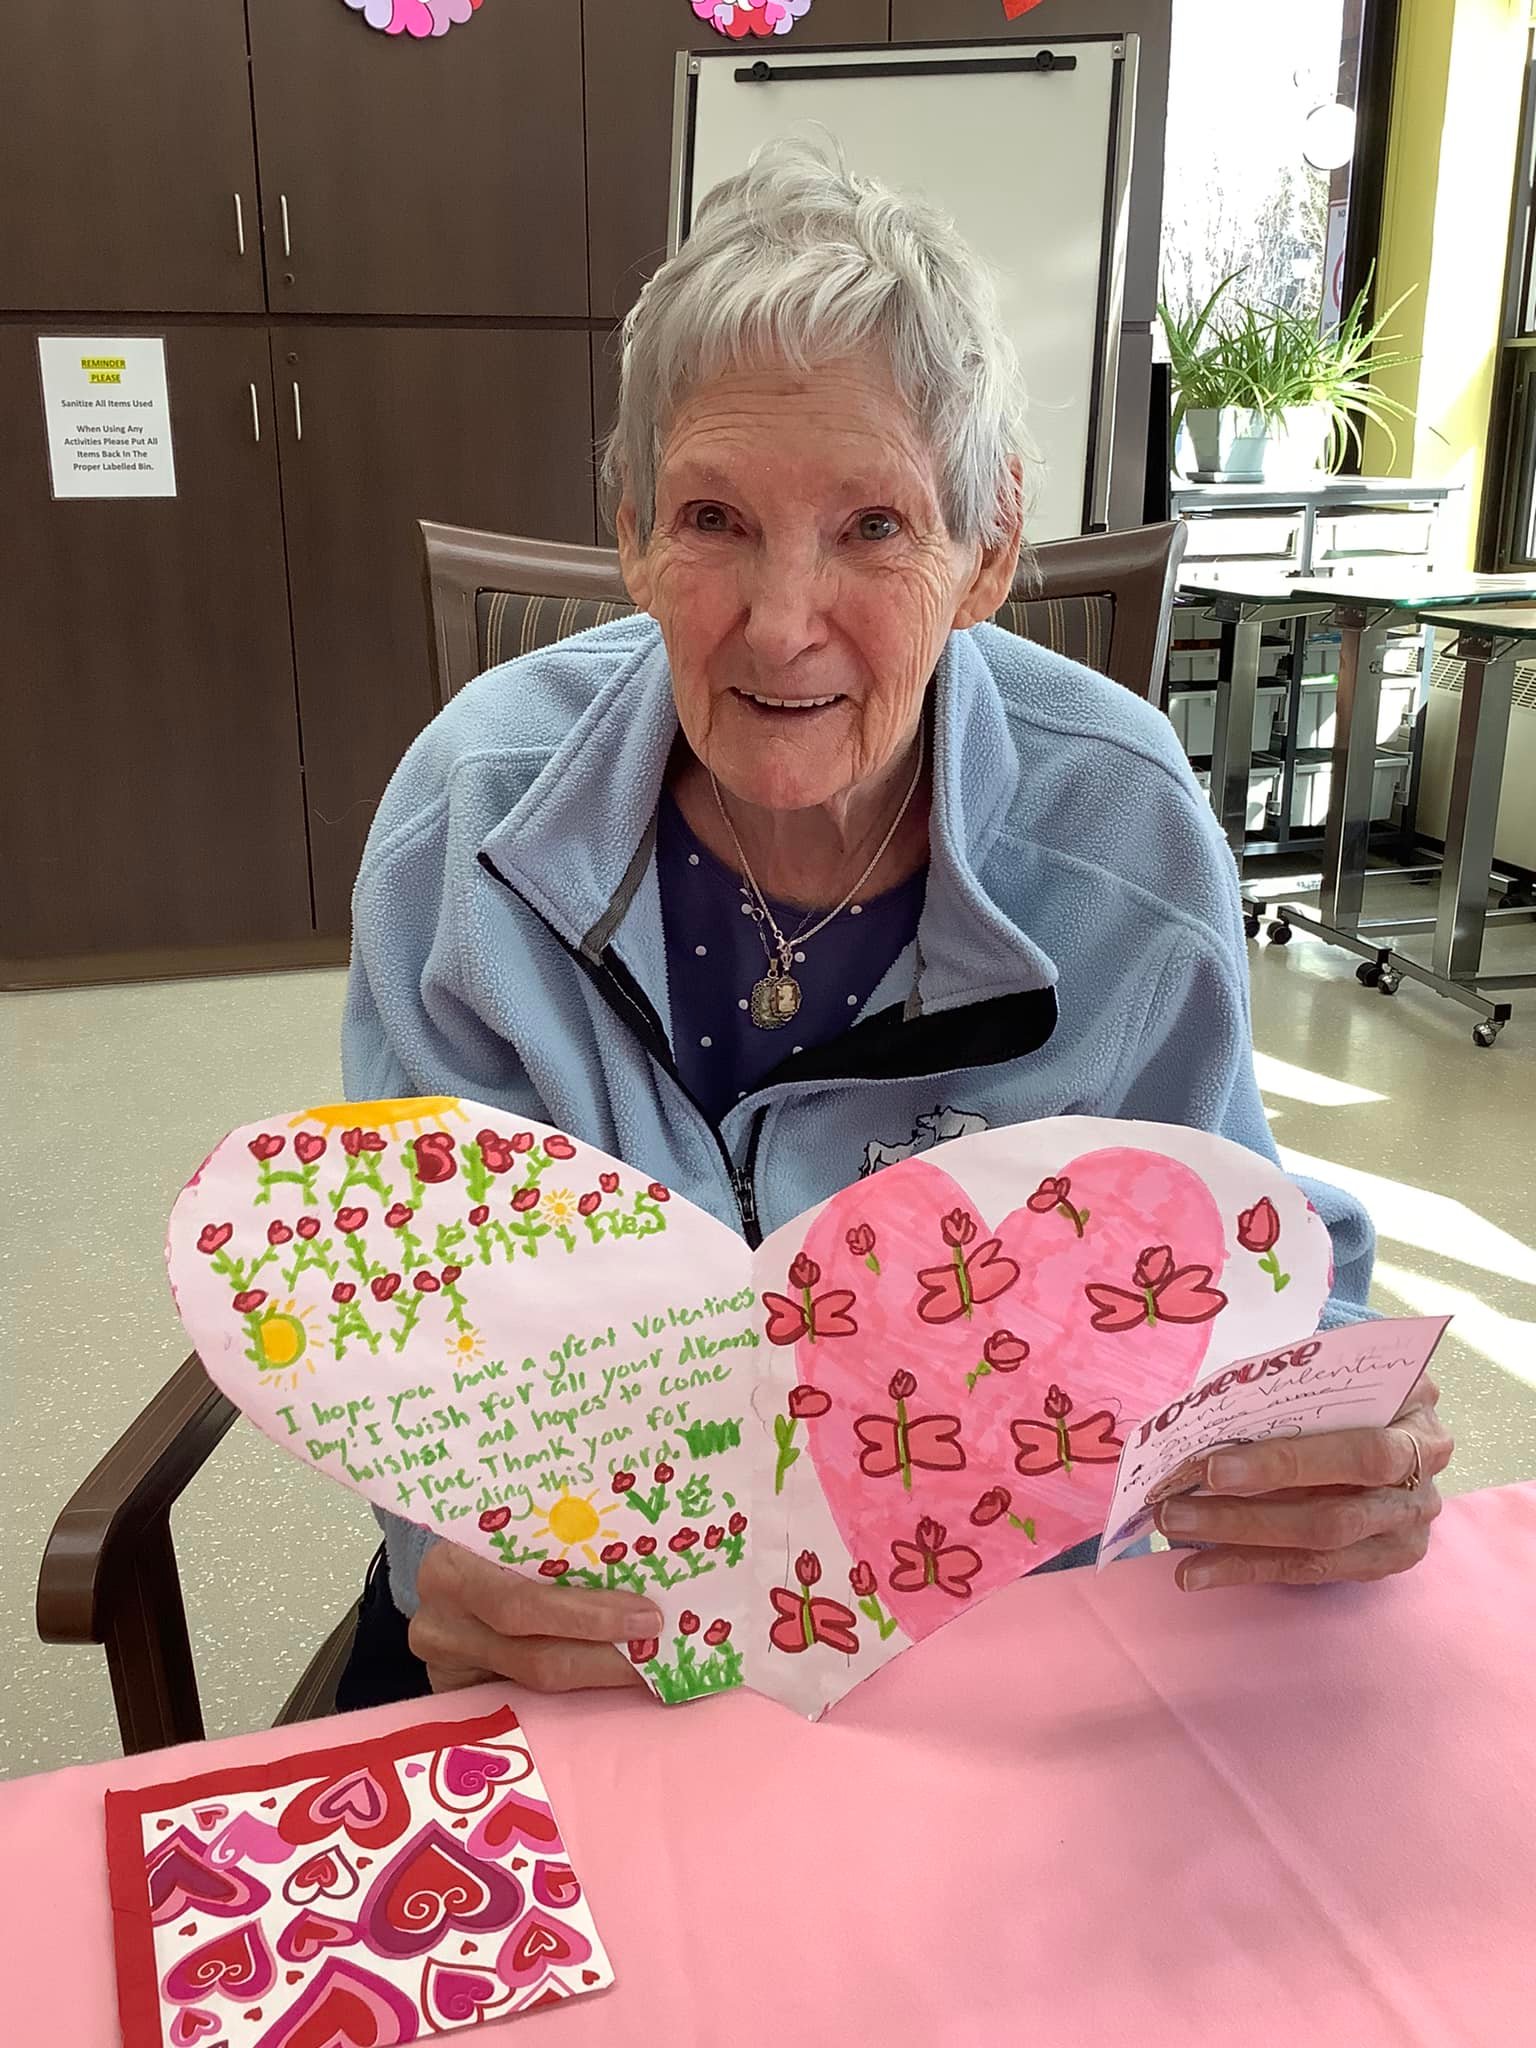 REMINDER
PLEASE
Sanitize All Items Used
When Using Any
Activities Please Put All
Items Back In The
Proper Labelled Bin.
HAPPY
VALLENTINES
DAY!
I hope you have a great Valentine's
Day! I wish for all your dreams
wishes and hopes to come
true. Thank you for
reading this card.
Joyeuse
Saint-Valentin
On vous aime!
you!